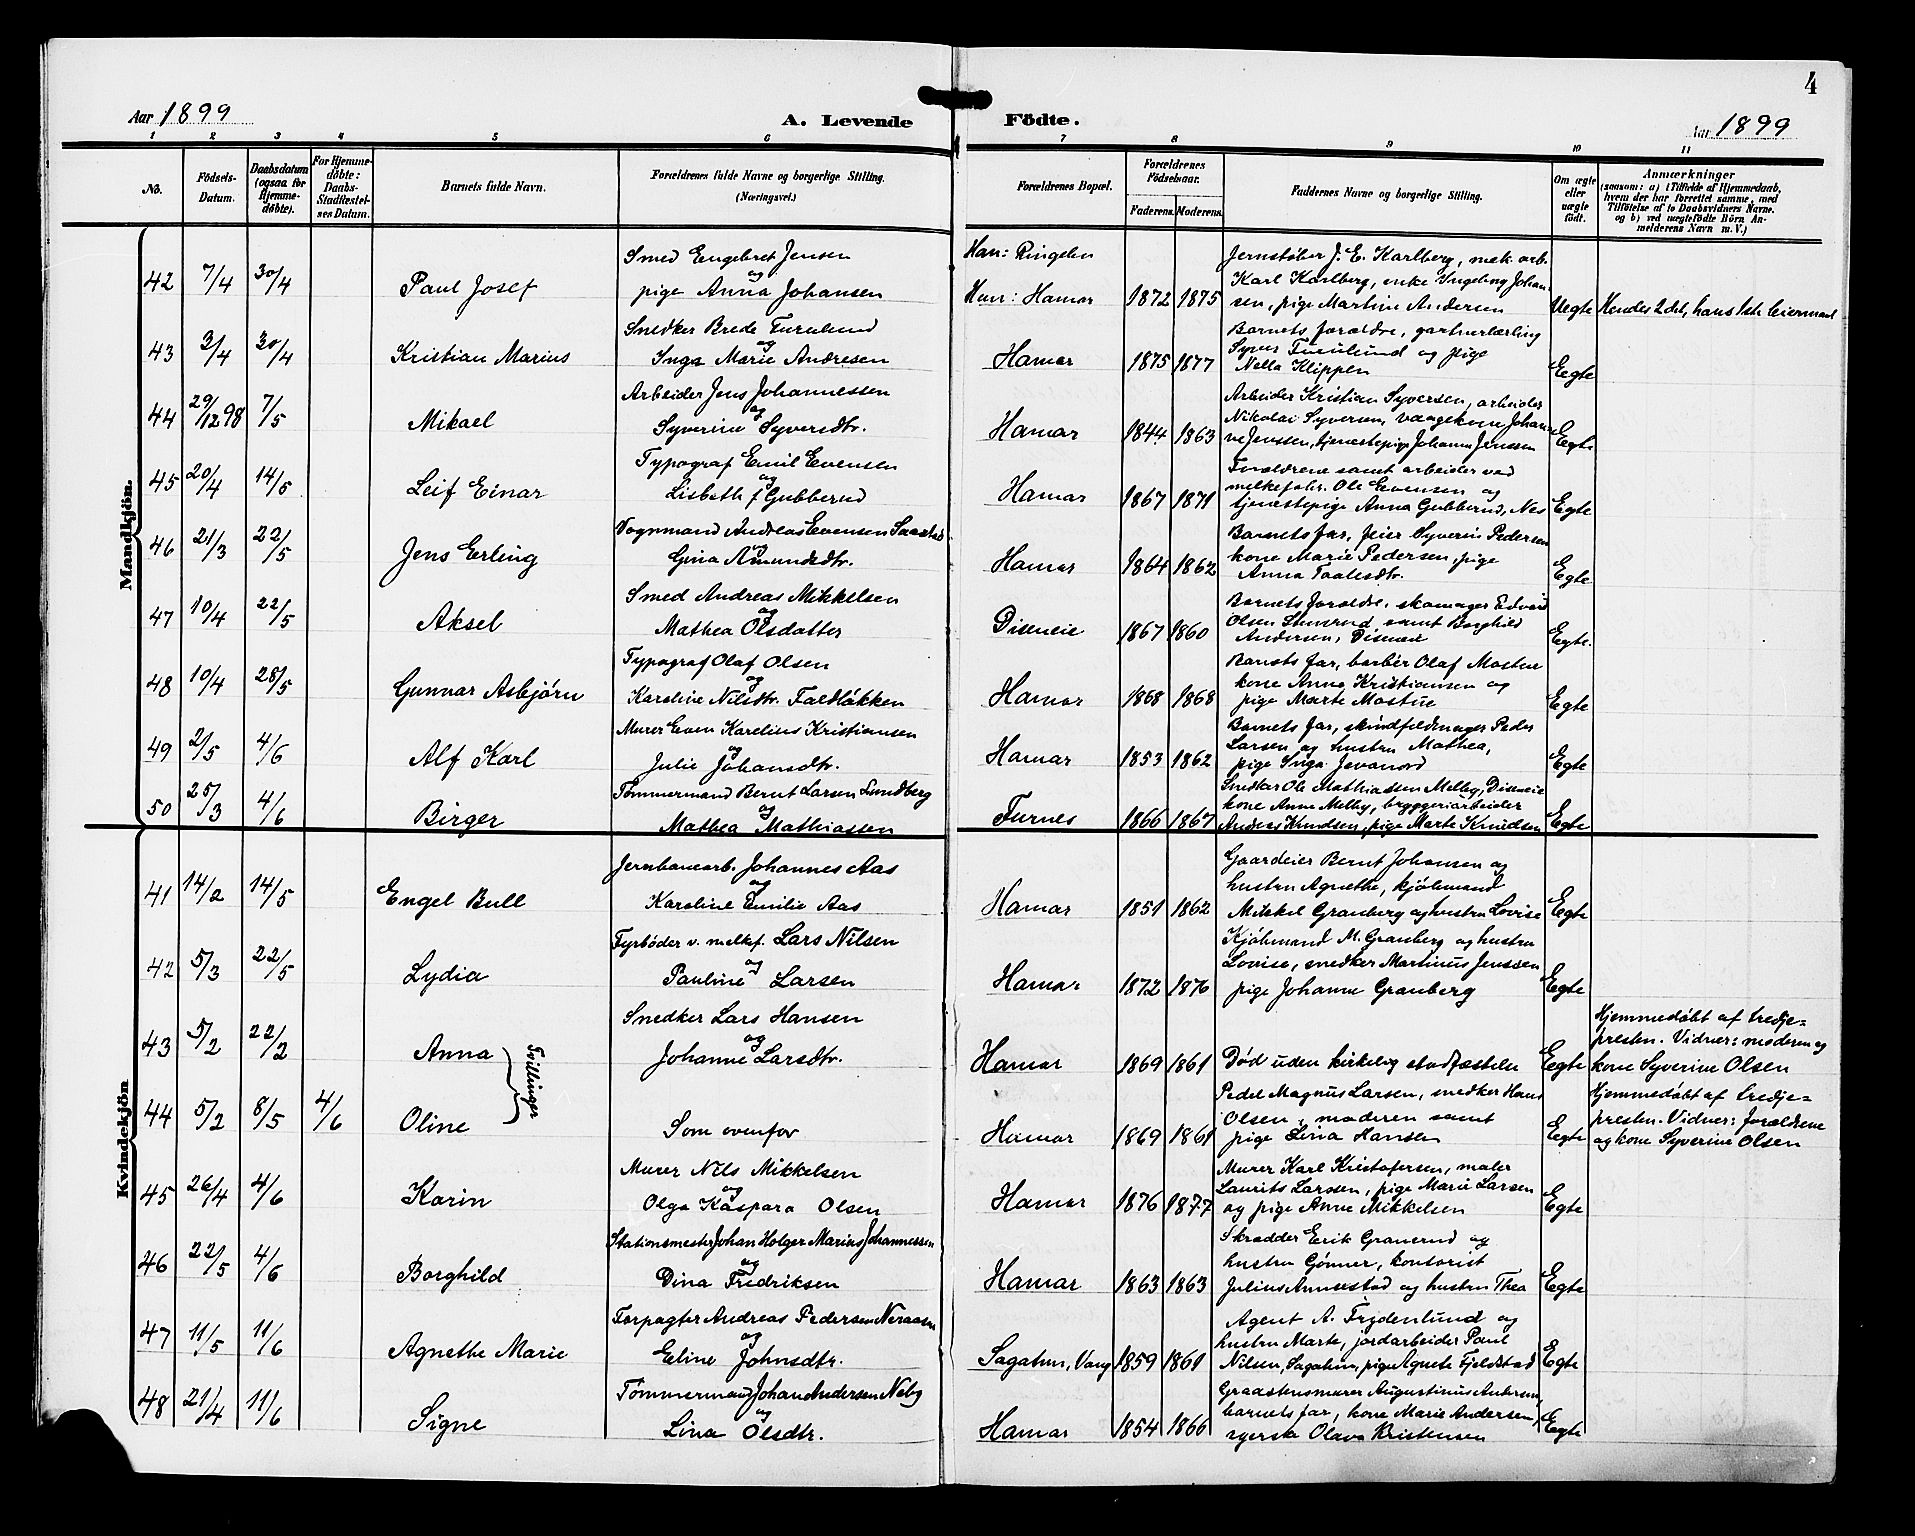 4
Aar 1899
A. Levende Födte.
Aar 1899
1 2 3 4 5 6 7 8 9 10 11
No.
Födsels-Datum.
Daabsdatum (ogsaa for Hjemme-døbte).
For Hjemme-døbte: Daabs-Stadfæstel-ses Datum.
Barnets fulde Navn.
Forældrenes fulde Navne og borgerlige Stilling.
(Næringsvei.)
Forældrenes Bopæl.
Forældrenes Födselsaar.
Faderens. Moderens.
Faddernes Navne og borgerlige Stilling.
Om ægte eller uægte födt.
Anmærkninger
(saasom: a) i Tilfælde af Hjemmedaab,
hvem der har forrettet samme, med
Tilföielse af to Daabsvidners Navne.
og b) ved uægtefödte Börn An-
melderens Navn m. V.)
Mandkjön.
42 7/4 30/4 Paul Josef
Smed Engebret Jensen
og
pige Anna Johansen
Han: Ringelen
Hun: Hamar 1872 1875
Jernstøber J. E. Karlberg, mek. arb.
Karl Karlberg, enke Ingeborg Johan-
sen, pige Martine Andersen
Uegte Hendes 2det, hans 1ste leiermaal
43 3/4 30/4 Kristian Marius
Snedker Brede Furulund
og
Inga Marie Andresen
Hamar 1875 1877
Barnets forældre, gartnerlærling
Syver Furulund og pige
Nella Klippen
Egte
44 29/12 98 7/5 Mikael
Arbeider Jens Johannessen
og
Syverine Syversdtr.
Hamar 1844 1863
Arbeider Kristian Syversen, arbeider
Nikolai Syversen, vaagekone Johan-
ne Jenssen, tjenestepige Johanne Jenssen
Egte
45 20/4 14/5 Leif Einar
Typograf Emil Evensen
og
Lisbeth f. Gubberud
Hamar 1867 1871
Forældrene samt arbeider ved
melkefabr. Ole Evensen og
tjenestepige Anna Gubberud, Nes
Egte
46 21/3 22/5 Jens Erling
Vognmand Andreas Evensen Saastad
og
Gina Amundsdtr.
Hamar 1864 1862
Barnets far, feier Syverin Pedersen
kone Marie Pedersen, pige
Anna Taalesdtr.
Egte
47 10/4 22/5 Aksel
Smed Andreas Mikkelsen
og
Mathea Olsdatter
Diseneie 1867 1860
Barnets forældre, skomager Edvard
Olsen Stenrud, samt Borghild
Andersen, Diseneie
Egte.
48 10/4 28/5 Gunnar Asbjørn
Typograf Olaf Olsen
og
Karoline Nilsdtr. Faldløkken
Hamar 1868 1868
Barnets far, barbér Olaf Mostue
kone Anna Kristiansen og
pige Marte Mostue
Egte
49 2/5 4/6 Alf Karl
Murer Even Karelius Kristiansen
og
Julie Johansdtr.
Hamar 1853 1862
Barnets far, skindfeldmager Peder
Larsen og hustru Mathea,
pige Inga Jevanord
Egte
50 25/3 4/6 Birger
Tømmermand Bernt Larsen Lundberg
og
Mathea Mathiassen
Furnes 1866 1867
Snedker Ole Mathiassen Melby, Diseneie
kone Anne Melby, bryggeriarbeider
Anders Knudsen, pige Marte Knudsen
Egte
Kvindekjön
41 14/2 14/5 Engel Bull
Jernbanearb. Johannes Aas
og
Karoline Emilie Aas
Hamar 1851 1862
Gaardeier Bernt Johansen og
hustru Agnethe, kjøbmand
Mikkel Granberg og hustru Lovise
Egte
42 5/3 22/5 Lydia
Fyrbøder v. melkf. Lars Nilsen
og
Pauline Larsen
Hamar 1872 1876
Kjøbmand M. Granberg og hustru
Lovise, snedker Martinus Jenssen
pige Johanne Granberg
Egte
43 5/2 22/2 Anna
Tvillinger
Snedker Lars Hansen
og
Johanne Larsdtr.
Hamar 1869 1861
Død uden kirkelig stadfæstelse
Egte
Hjemmedøbt af tredje=
presten. Vidner: moderen og
kone Syverine Olsen
44 5/2 8/5 4/6 Oline
Som ovenfor
Hamar 1869 1861
Pedel Magnus Larsen, snedker Hans
Olsen, moderen samt
pige Lina Hansen
Egte
Hjemmedøbt af tredje=
presten. Vidner: forældrene
og kone Syverine Olsen
45 26/4 4/6 Karin
Murer Nils Mikkelsen
og
Olga Kaspara Olsen
Hamar 1876 1877
Murer Karl Kristofersen, maler
Laurits Larssen, pige Marie Larsen
og pige Anne Mikkelsen
Egte
46 22/5 4/6 Borghild
Stationsmester Johan Holger Marius Johannessen
og
Dina Fredriksen
Hamar 1863 1863
Skrædder Erik Granerud og
hustru Gønner, kontorist
Julius Annestad og hustru Thea
Egte
47 11/5 11/6 Agnethe Marie
Forpagter Andreas Pedersen Neraasen
og
Eline Johnsdtr.
Sagatun, Vang 1859 1861
Agent A. Frydenlund og
hustru Marte, jordarbeider Paul
Nilsen, Sagatun, pige Agnete Fjeldstad
Egte
48 21/4 11/6 Signe
Tømmermand Johan Andersen Neby
og
Lina Olsdtr.
Hamar 1854 1866
Graastensmurer Augustinus Andersen,
barnets far, kone Marie Andersen,
syerske Olava Kristensen
Egte